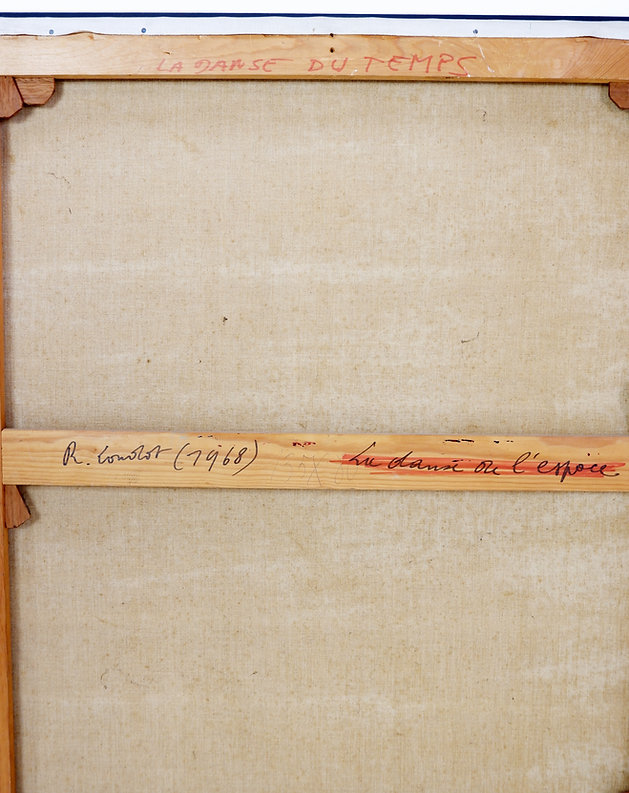 LA DANSE DU TEMPS
R. Londot (1968) La danse de l'espace